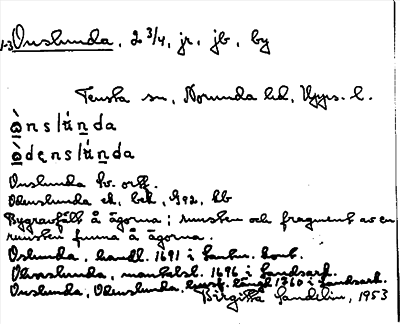 1-3 Onslunda, 2 3/4, jr, jb, by
Tensta sn, Norunda hd, Upps. l.
ò̱nslúṉda
ò̱denslúṉda
Onslunda kv. off.
Odenslunda ek, bek, G92, hb
Bygravfält å ägorna; runsten och fragment av en
runsten finna å ägorna.
Oslunda, handl. 1691 i Lantm. kont.
Olvaslunda, mantalsl. 1696 i Landsark.
Onslunda, Odenslunda, längd 1760 i Landsark.
Birgitta Sundelin, 1953